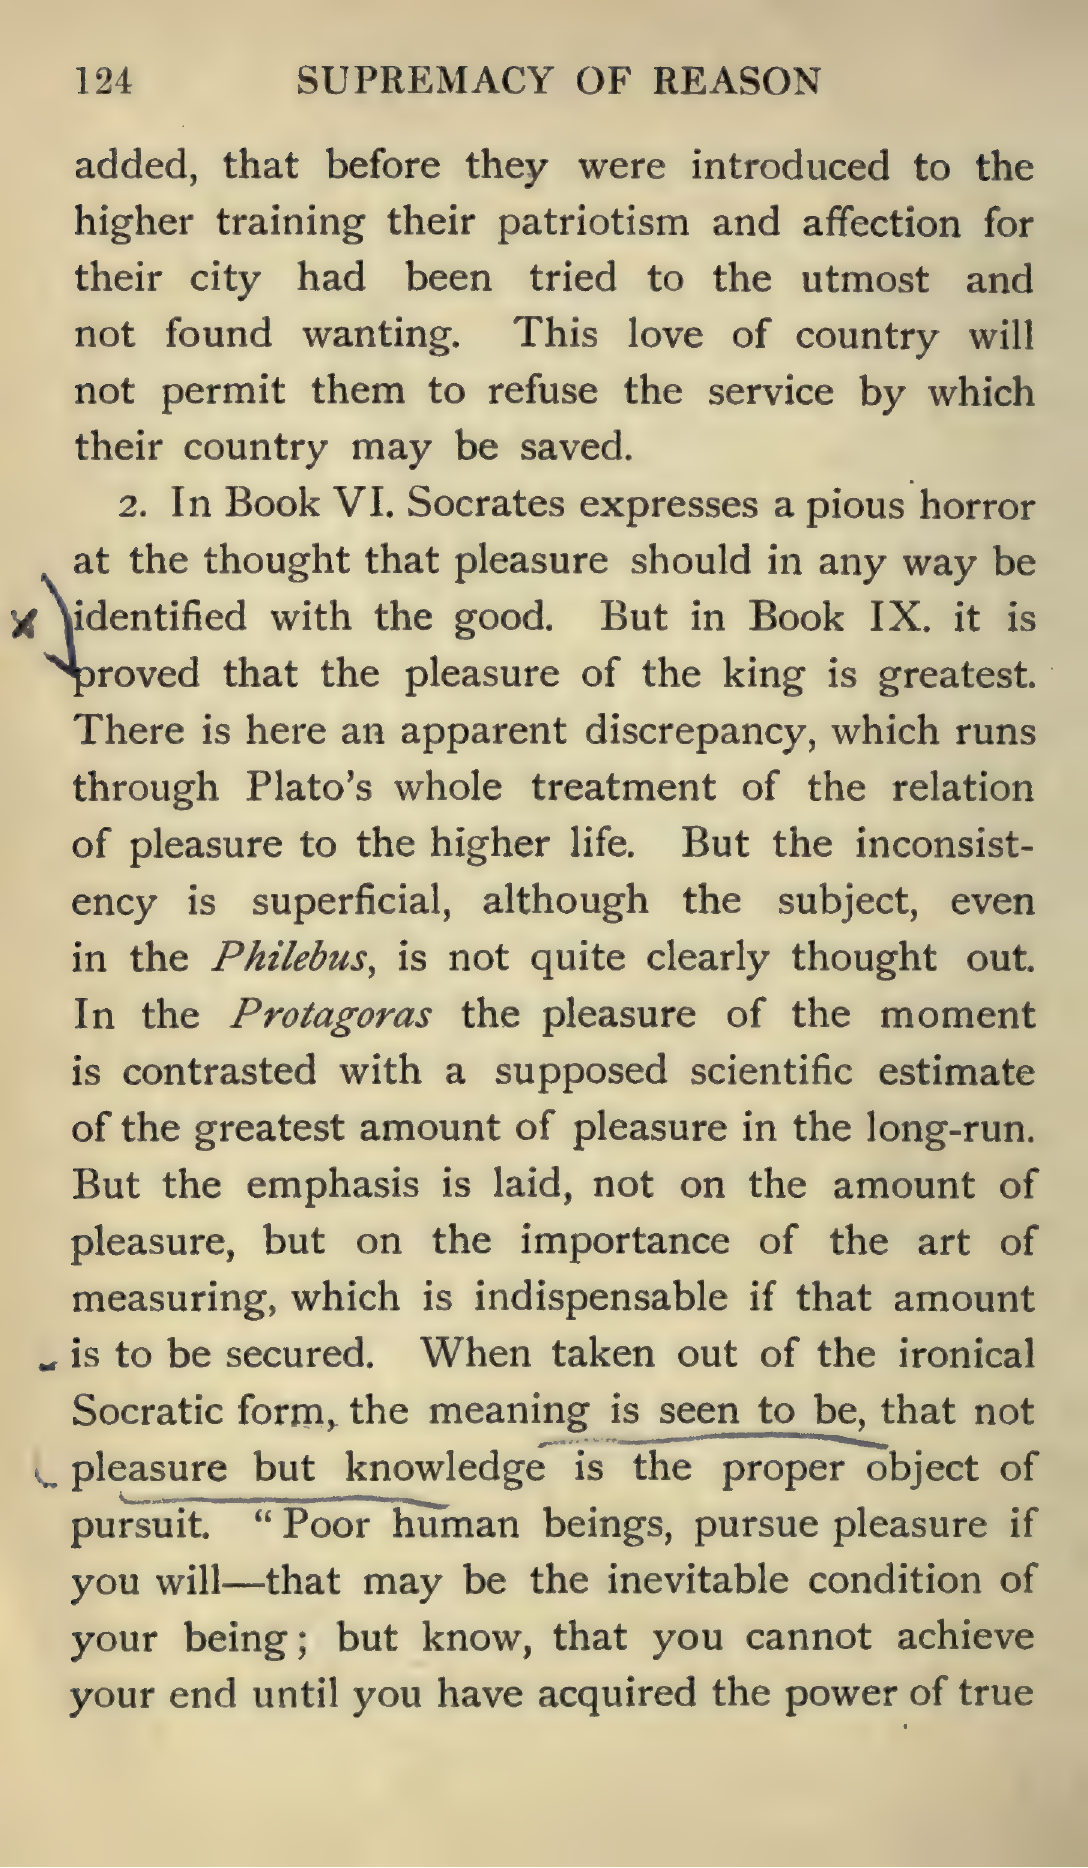 124 SUPREMACY OF REASON
added, that before they were introduced to the
higher training their patriotism and affection for
their city had been tried to the utmost and
not found wanting. This love of country will
not permit them to refuse the service by which
their country may be saved.
2. In Book VI. Socrates expresses a pious horror
at the thought that pleasure should in any way be
identified with the good. But in Book IX. it is
proved that the pleasure of the king is greatest.
There is here an apparent discrepancy, which runs
through Plato's whole treatment of the relation
of pleasure to the higher life. But the inconsist-
ency is superficial, although the subject, even
in the Philebus, is not quite clearly thought out.
In the Protagoras the pleasure of the moment
is contrasted with a supposed scientific estimate
of the greatest amount of pleasure in the long-run.
But the emphasis is laid, not on the amount of
pleasure, but on the importance of the art of
measuring, which is indispensable if that amount
is to be secured. When taken out of the ironical
Socratic form, the meaning is seen to be, that not
pleasure but knowledge is the proper object of
pursuit. “Poor human beings, pursue pleasure if
you will—that may be the inevitable condition of
your being; but know, that you cannot achieve
your end until you have acquired the power of true